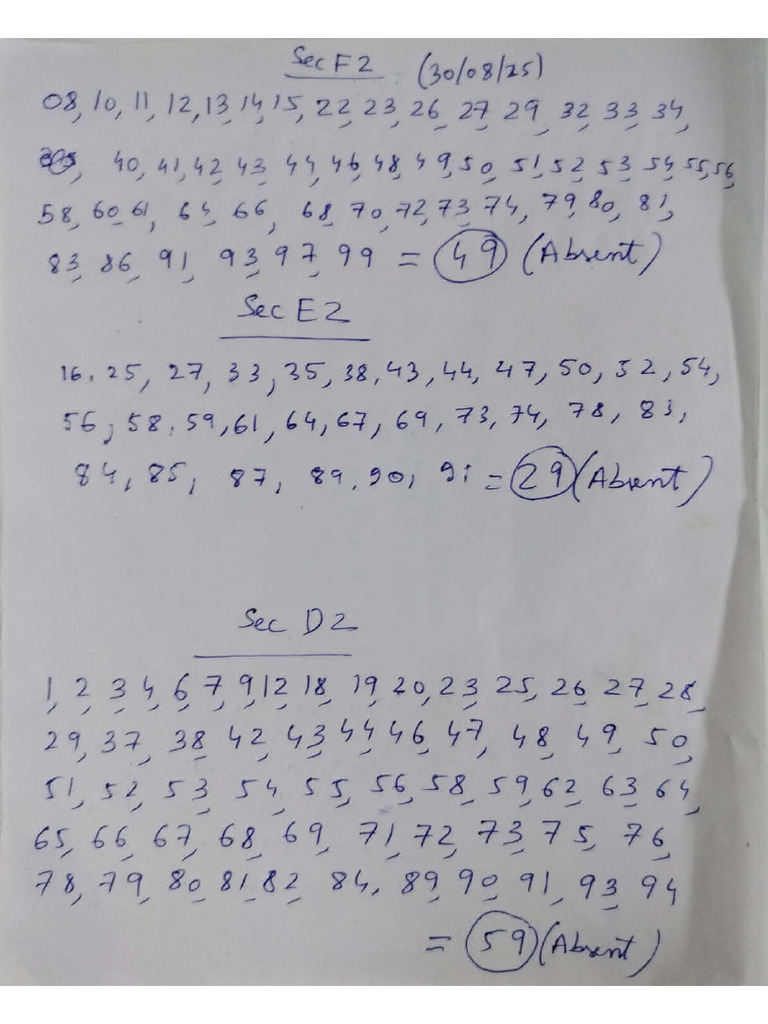 Sec F2 (30/08/25)
08, 10, 11, 12, 13, 14, 15, 22, 23, 26, 27, 29, 32, 33, 34,
40, 41, 42, 43, 44, 46, 48, 49, 50, 51, 52, 53, 54, 55, 56,
58, 60, 61, 64, 66, 68, 70, 72, 73, 74, 79, 80, 81,
83, 86, 91, 93, 97, 99 = 49 (Absent)
Sec E2
16, 25, 27, 33, 35, 38, 43, 44, 47, 50, 52, 54,
56, 58, 59, 61, 64, 67, 69, 73, 74, 78, 83,
84, 85, 87, 89, 90, 91 = 29 (Absent)
Sec D2
1, 2, 3, 4, 6, 7, 9, 12, 18, 19, 20, 23, 25, 26, 27, 28,
29, 37, 38, 42, 43, 44, 46, 47, 48, 49, 50,
51, 52, 53, 54, 55, 56, 58, 59, 62, 63, 64,
65, 66, 67, 68, 69, 71, 72, 73, 75, 76,
78, 79, 80, 81, 82, 84, 89, 90, 91, 93, 94
= 59 (Absent)